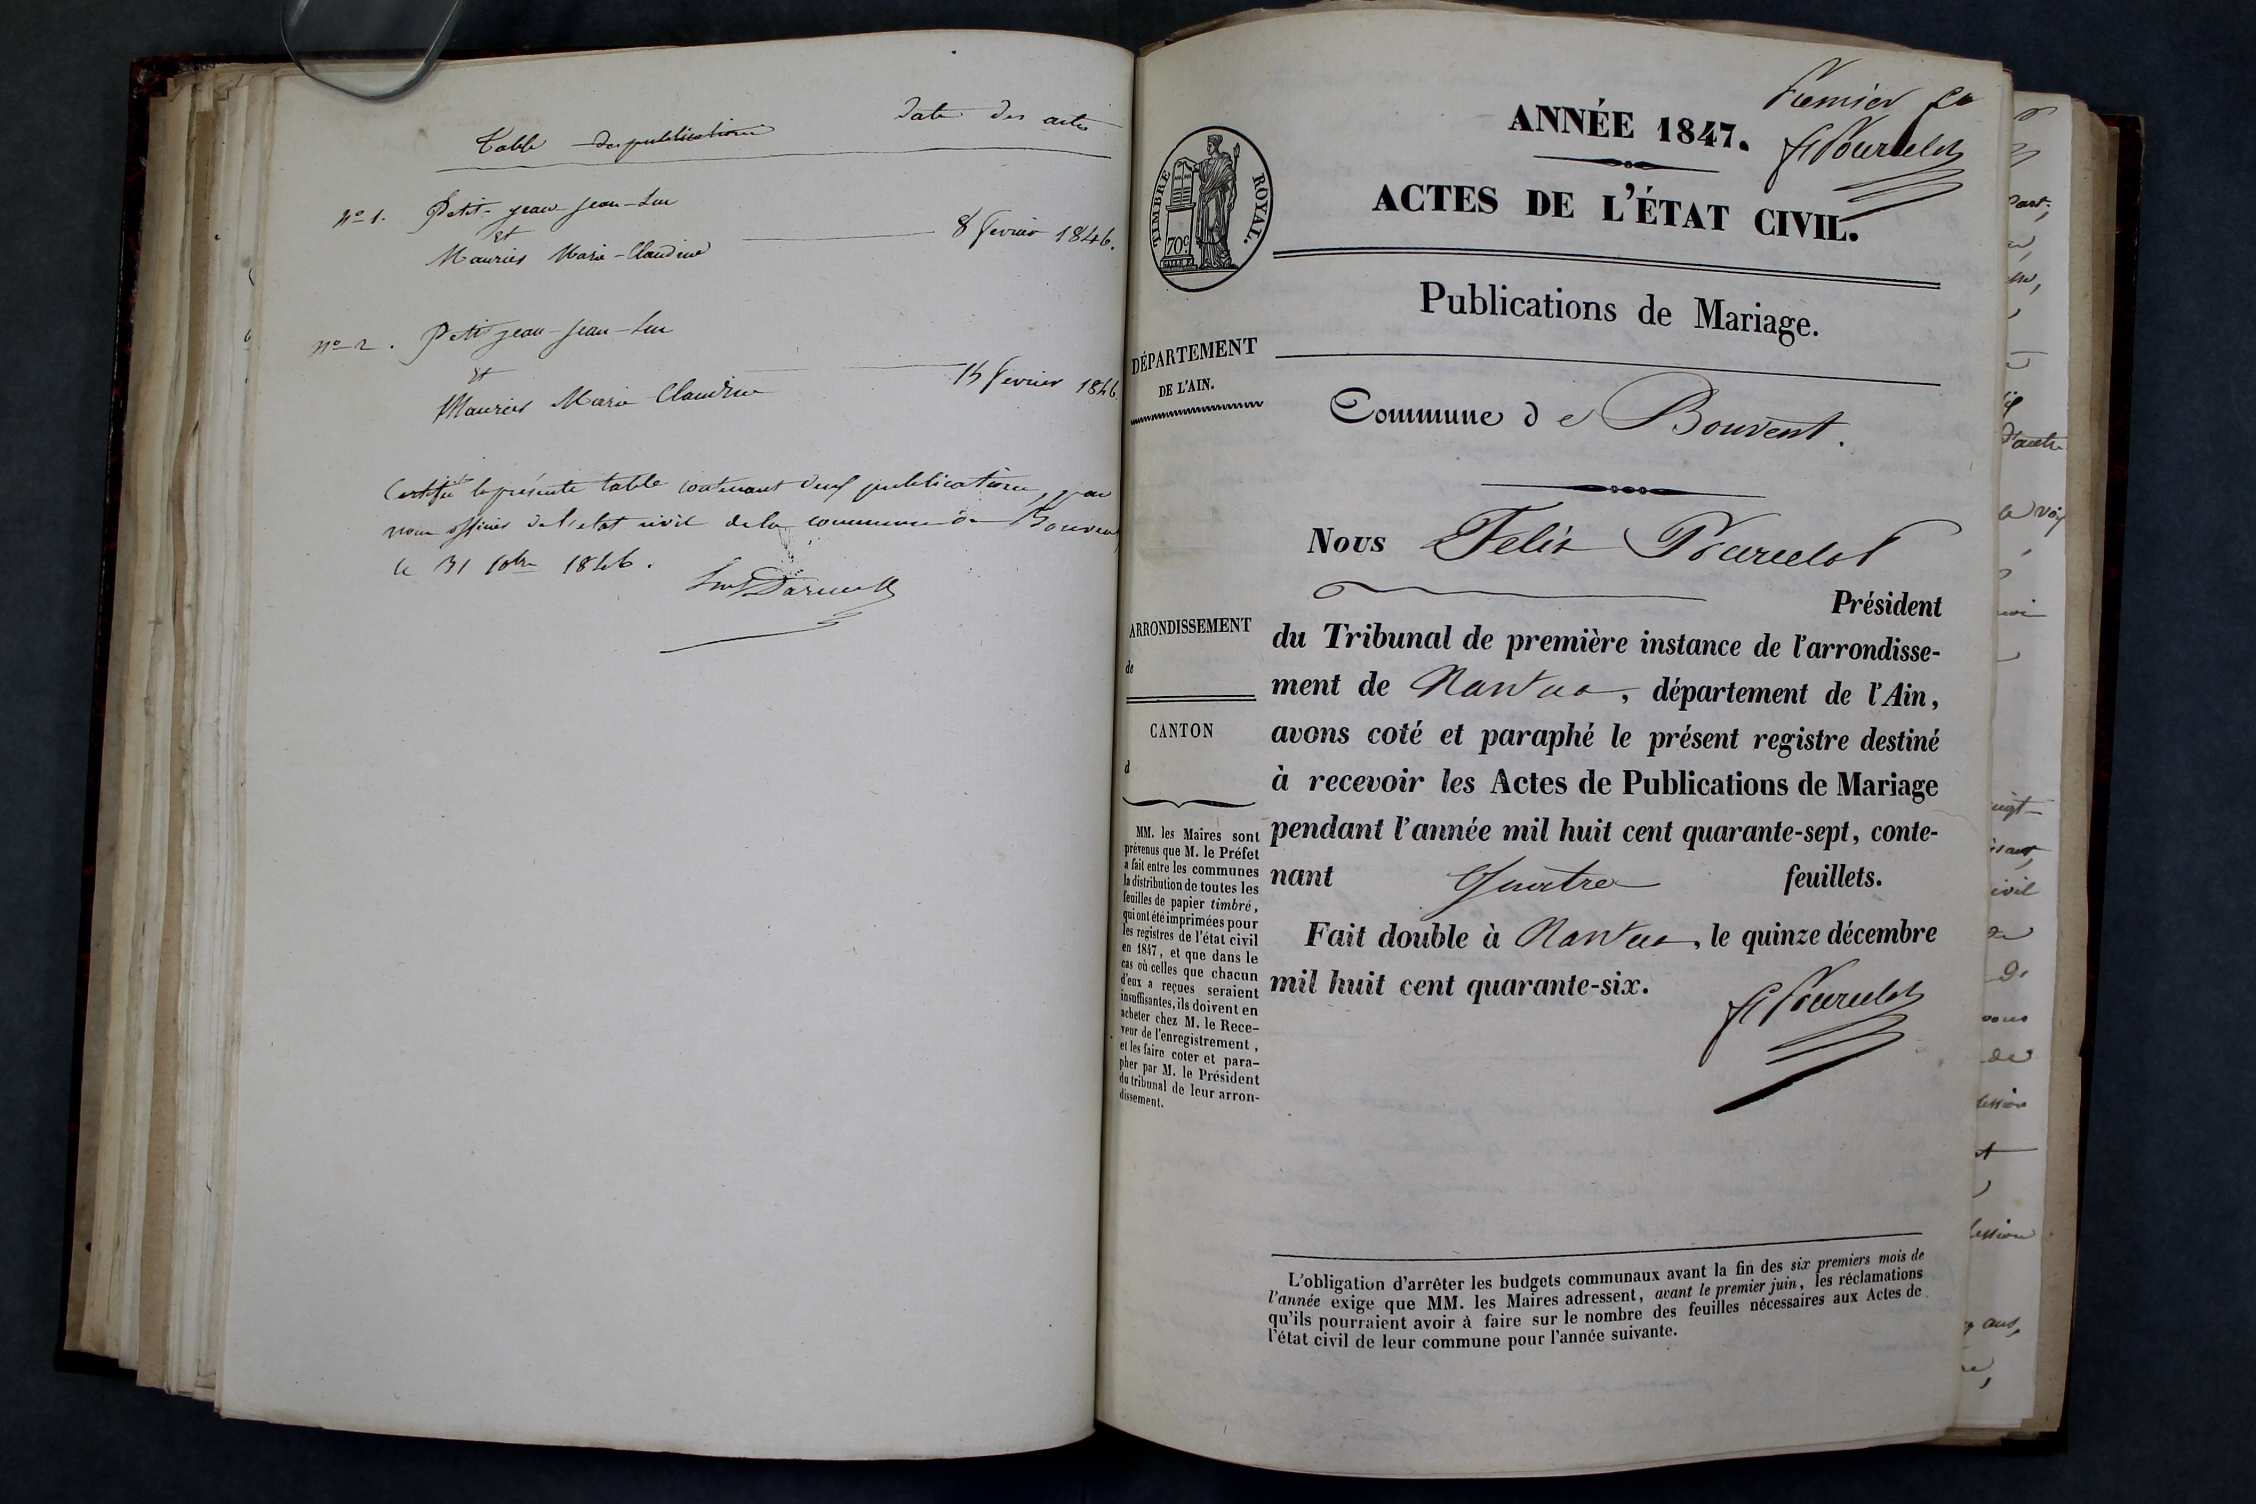 Table des publications
Date des actes
n° 1. Petit-jean jean-Luc
et
Mauries Marie-Claudine
8 fevrier 1846.
n° 2. Petit jean-jean-Luc
et
Mauries Marie Claudine
15 fevrier 1846
Certifié la présente table contenant deux publications, par
nous officier de l'etat civil de la commune de Bouvent
le 31 10bre 1846.
Premier fo
ANNÉE 1847.
F Pourcelot
TIMBRE ROYAL.
70c.
ACTES DE L'ÉTAT CIVIL.
Publications de Mariage.
DÉPARTEMENT
DE L'AIN.
Commune de Bouvent.
Nous Felix Pourcelot
Président
ARRONDISSEMENT
de
CANTON
d
du Tribunal de première instance de l'arrondisse-
ment de Nantua, département de l'Ain,
avons coté et paraphé le présent registre destiné
à recevoir les Actes de Publications de Mariage
pendant l'année mil huit cent quarante-sept, conte-
nant Quatre feuillets.
Fait double à Nantua, le quinze décembre
mil huit cent quarante-six.
F Pourcelot
MM. les Maires sont
prévenus que M. le Préfet
a fait entre les communes
la distribution de toutes les
feuilles de papier timbré,
qui ont été imprimées pour
les registres de l'état civil
en 1847, et que dans le
cas où celles que chacun
d'eux a reçues seraient
insuffisantes, ils doivent en
acheter chez M. le Rece-
veur de l'enregistrement,
et les faire coter et para-
pher par M. le Président
du tribunal de leur arron-
dissement.
L'obligation d'arrêter les budgets communaux avant la fin des six premiers mois de
l'année exige que MM. les Maires adressent, avant le premier juin, les réclamations
qu'ils pourraient avoir à faire sur le nombre des feuilles nécessaires aux Actes de
l'état civil de leur commune pour l'année suivante.